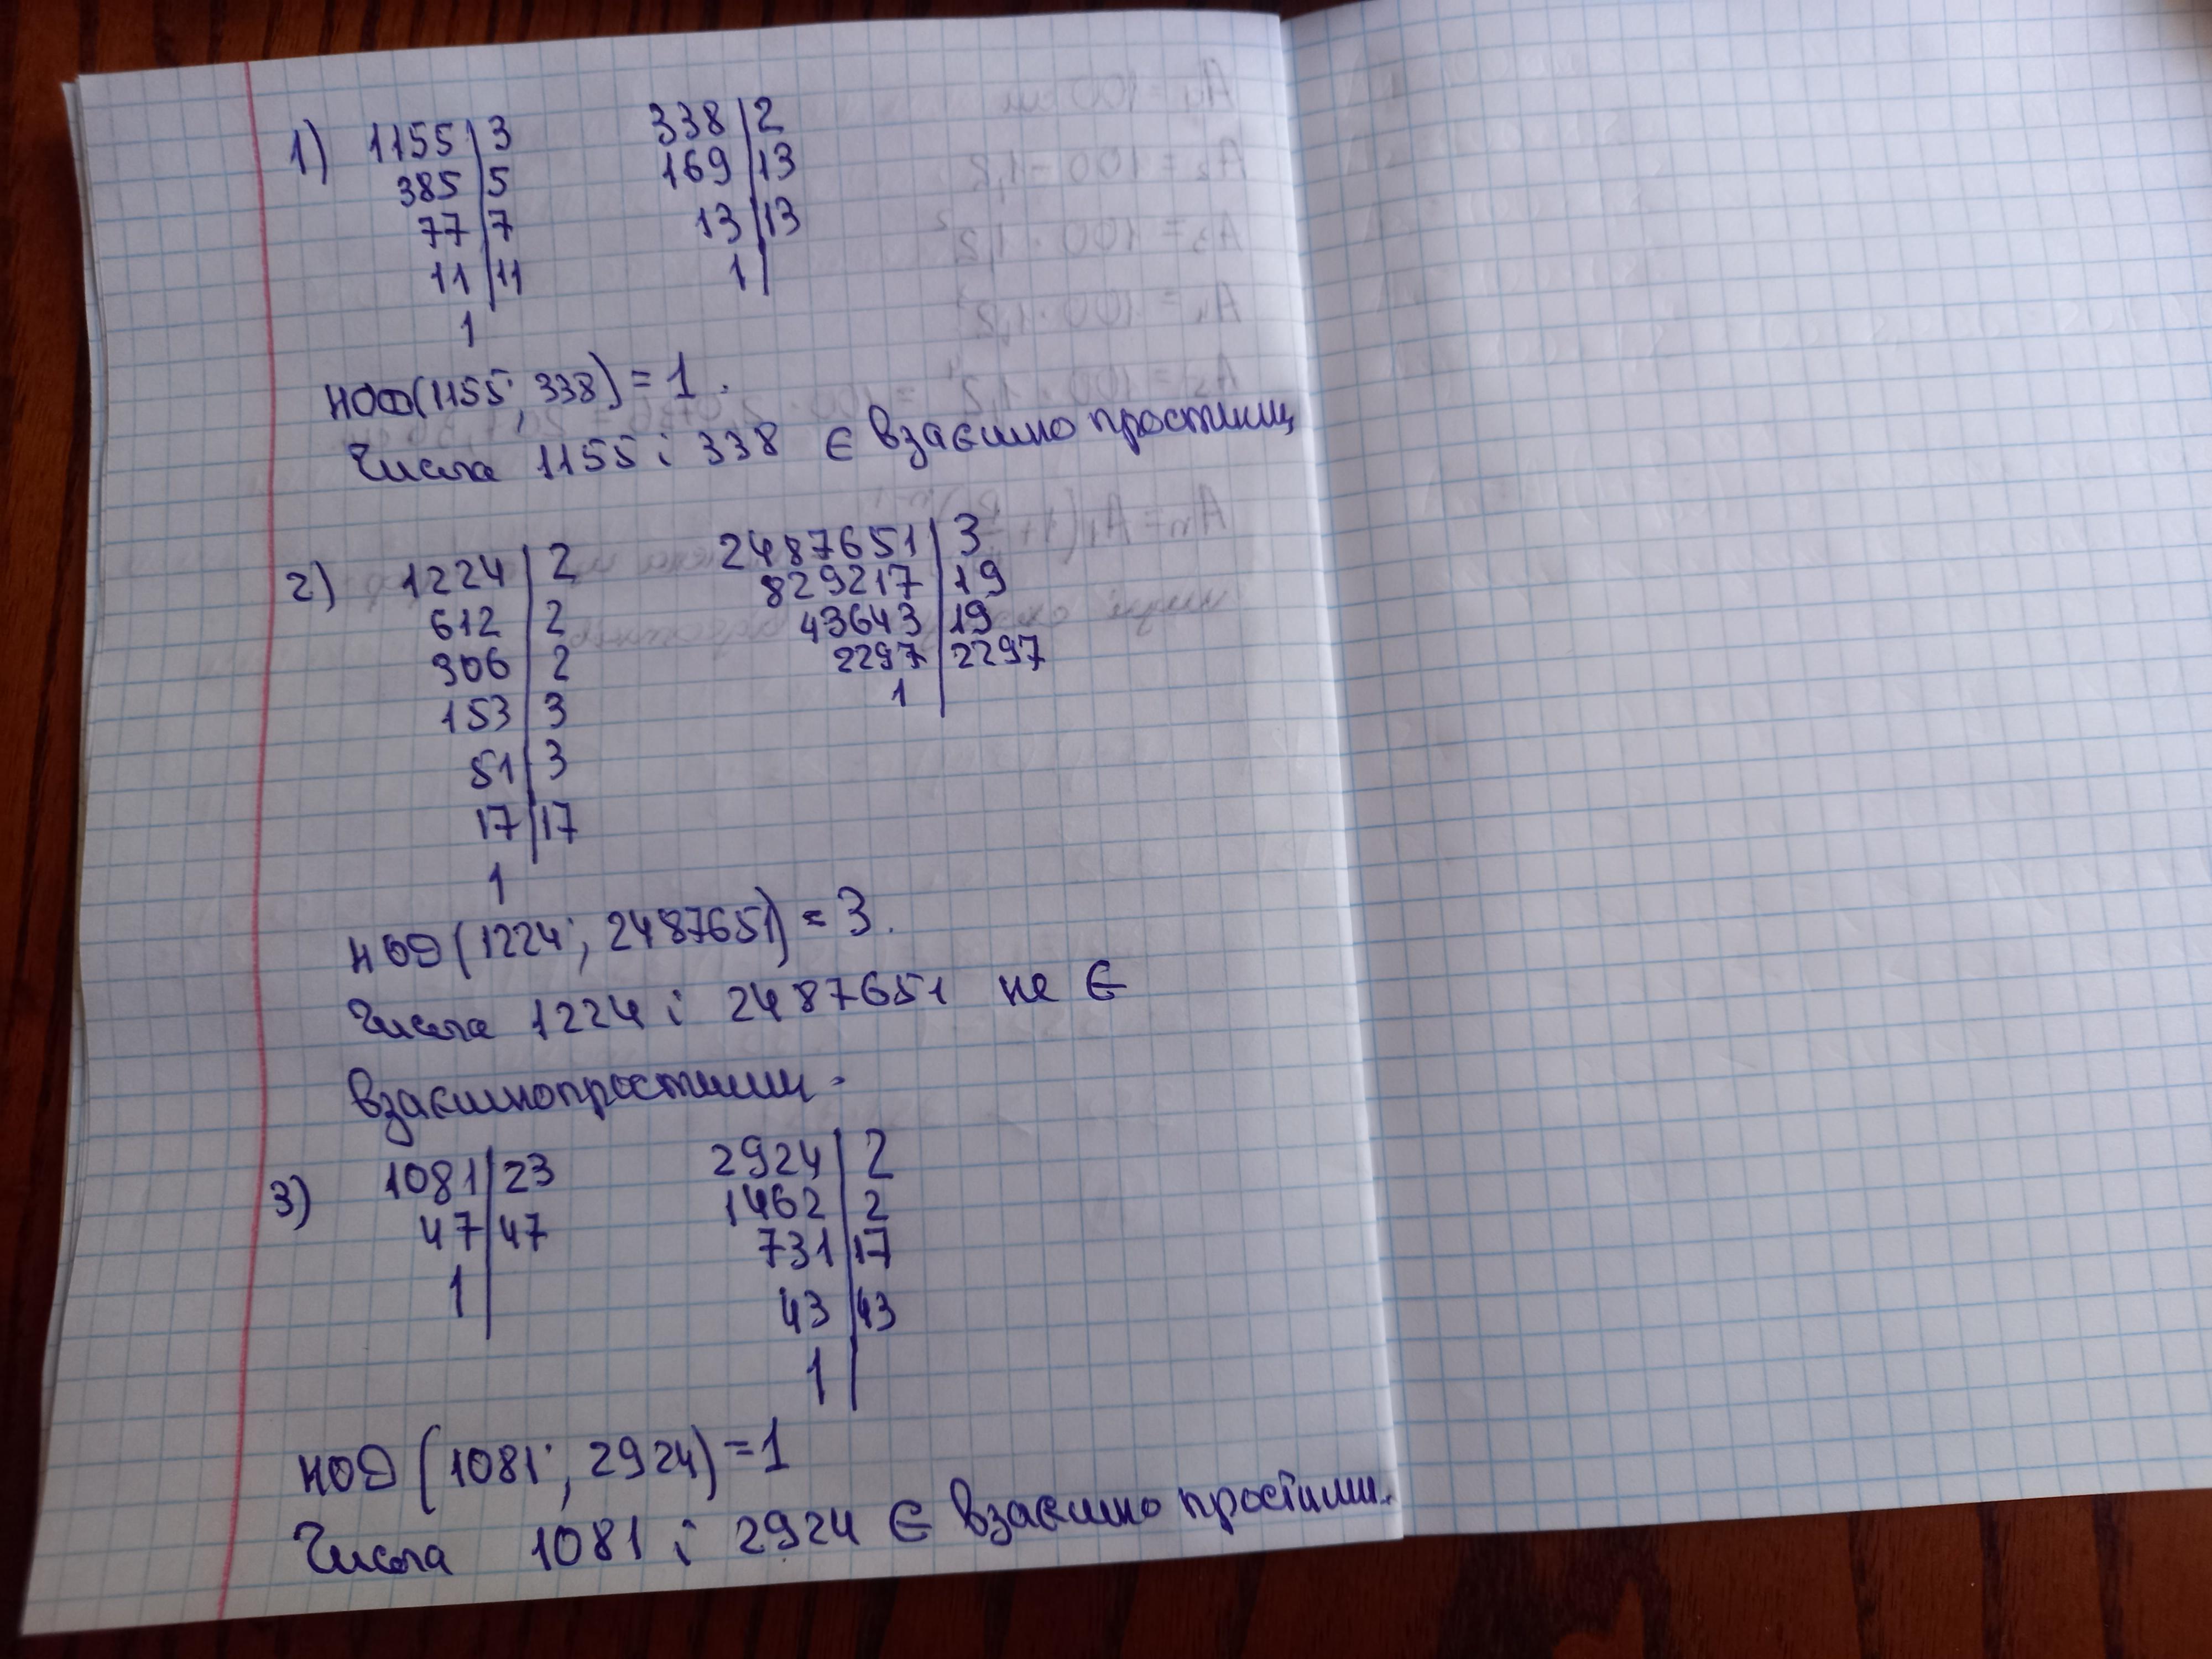 1) 1155 | 3 338 | 2
385 | 5 169 | 13
77 | 7 13 | 13
11 | 11 1 |
1
НОД(1155; 338) = 1.
Числа 1155 і 338 є взаємно простими
2) 1224 | 2 2487651 | 3
612 | 2 829217 | 19
306 | 2 43643 | 19
153 | 3 2297 | 2297
51 | 3 1 |
17 | 17
1
НОД (1224; 2487651) = 3.
Числа 1224 і 2487651 не є
взаємнопростими.
3) 1081 | 23 2924 | 2
47 | 47 1462 | 2
1 | 731 | 17
43 | 43
1 |
НОД (1081; 2924) = 1
Числа 1081 і 2924 є взаємно простими.